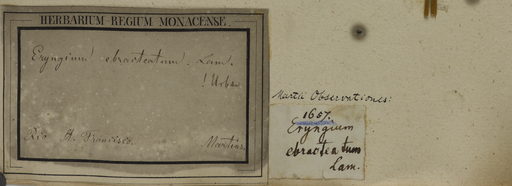 HERBARIUM REGIUM MONACENSE.
Eryngium ebracteatum. Lam.
! Urban
Rio St. Francisco. Martius.
Martii Observationes:
1657.
Eryngium
ebracteatum
Lam.